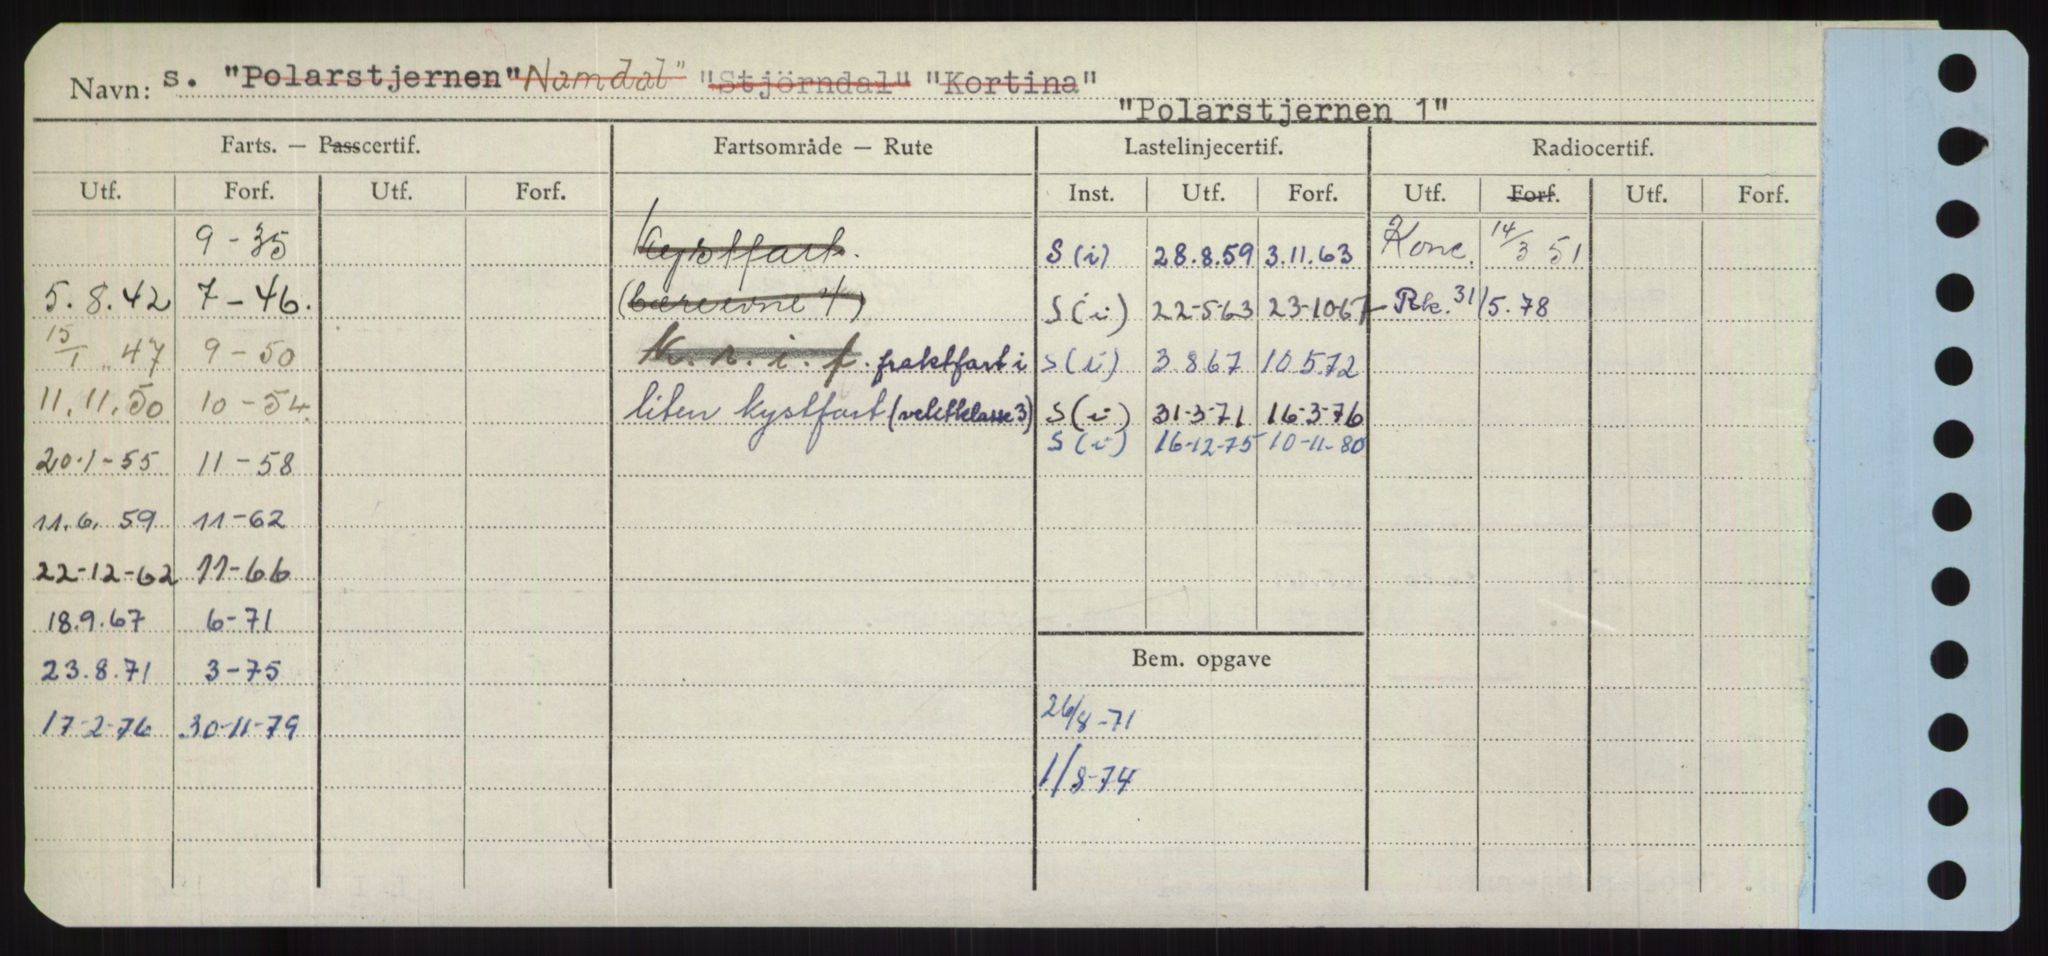 Navn: s. "Polarstjernen" Namdal" "Stjörndal" "Kortina"
"Polarstjernen 1"
Farts. — Passcertif. Fartsområde — Rute Lastelinjecertif. Radiocertif.
Utf. Forf. Utf. Forf. Inst. Utf. Forf. Utf. Forf. Utf. Forf.
9-35 Kystfart. S(i) 28.8.59 3.11.63 Konc. 14/3 51
5.8.42 7-46. (bæreevne 4) S(i) 22-5-63 23-10-67 Rk. 31/5.78
15/1 47 9-50 K.r.i.f. fraktfart i S(i) 3.8.67 10.5.72
11.11.50 10-54. liten kystfart (vektklasse 3) S(i) 31-3-71 16-3-76
S(i) 16-12-75 10-11-80
20-1-55 11-58
11.6.59 11-62
22-12-62 11-66
18.9.67 6-71
Bem. opgave
23.8.71 3-75
26/8-71
17-2-76 30-11-79
1/8-74